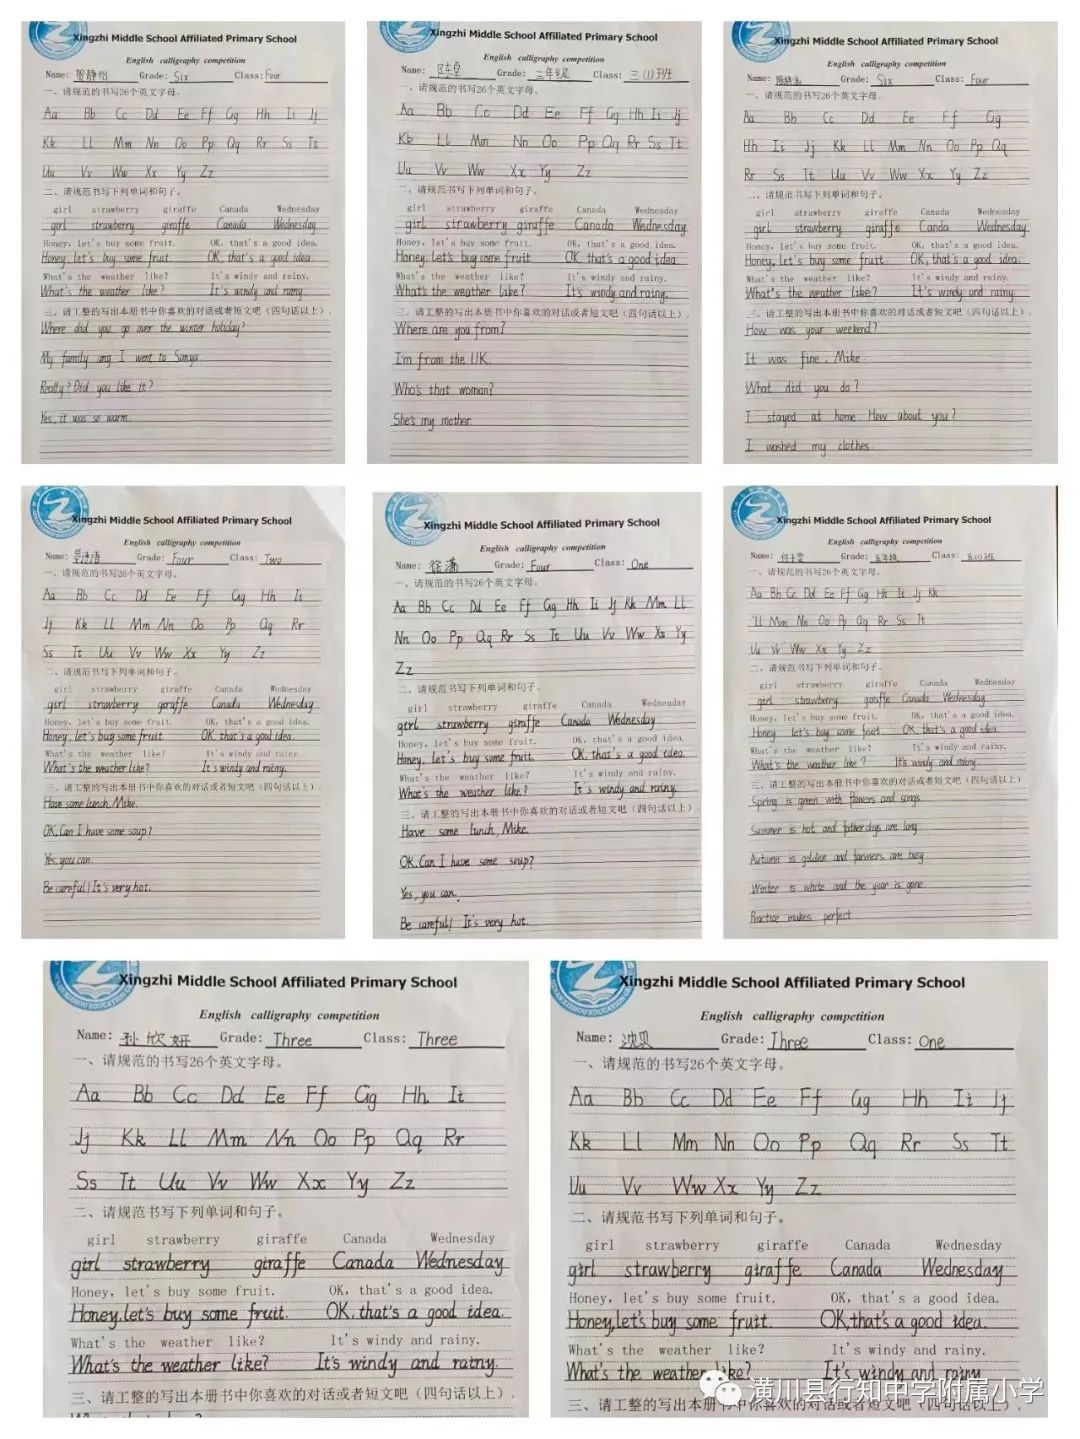 Xingzhi Middle School Affiliated Primary School
English calligraphy competition
Name: 贺静怡 Grade: Six Class: Four
一、请规范的书写26个英文字母。
Aa Bb Cc Dd Ee Ff Gg Hh Ii Jj
Kk Ll Mm Nn Oo Pp Qq Rr Ss Tt
Uu Vv Ww Xx Yy Zz
二、请规范书写下列单词和句子。
girl strawberry giraffe Canada Wednesday
girl strawberry giraffe Canada Wednesday
Honey, let's buy some fruit. OK, that's a good idea.
Honey, let's buy some fruit. OK, that's a good idea.
What's the weather like? It's windy and rainy.
What's the weather like? It's windy and rainy.
三、请工整的写出本册书中你喜欢的对话或者短文吧（四句话以上）.
Where did you go over the winter holiday?
My family and I went to Sanya.
Really? Did you like it?
Yes, it was so warm.
Xingzhi Middle School Affiliated Primary School
English calligraphy competition
Name: Grade: 三年级 Class: 三(1)班
一、请规范的书写26个英文字母。
Aa Bb Cc Dd Ee Ff Gg Hh Ii Jj
Kk Ll Mm Nn Oo Pp Qq Rr Ss Tt
Uu Vv Ww Xx Yy Zz
二、请规范书写下列单词和句子。
girl strawberry giraffe Canada Wednesday
girl strawberry giraffe Canada Wednesday
Honey, let's buy some fruit. OK, that's a good idea.
Honey, let's buy some fruit. OK, that's a good idea
What's the weather like? It's windy and rainy.
What's the weather like? It's windy and rainy.
三、请工整的写出本册书中你喜欢的对话或者短文吧（四句话以上）.
Where are you from?
I'm from the UK.
Who's that woman?
She's my mother.
Xingzhi Middle School Affiliated Primary School
English calligraphy competition
Name: Grade: Six Class: Four
一、请规范的书写26个英文字母。
Aa Bb Cc Dd Ee Ff Gg
Hh Ii Jj Kk Ll Mm Nn Oo Pp Qq
Rr Ss Tt Uu Vv Ww Xx Yy Zz
二、请规范书写下列单词和句子。
girl strawberry giraffe Canada Wednesday
girl strawberry giraffe Canda Wednesday
Honey, let's buy some fruit. OK, that's a good idea.
Honey, let's buy some fruit. OK, that's a good idea.
What's the weather like? It's windy and rainy.
What's the weather like? It's windy and rainy.
三、请工整的写出本册书中你喜欢的对话或者短文吧（四句话以上）.
How was your weekend?
It was fine, Mike.
What did you do?
I stayed at home. How about you?
I washed my clothes.
Xingzhi Middle School Affiliated Primary School
English calligraphy competition
Name: Grade: Four Class: Two
一、请规范的书写26个英文字母。
Aa Bb Cc Dd Ee Ff Gg Hh Ii
Jj Kk Ll Mm Nn Oo Pp Qq Rr
Ss Tt Uu Vv Ww Xx Yy Zz
二、请规范书写下列单词和句子。
girl strawberry giraffe Canada Wednesday
girl strawberry geraffe Canada Wednesday
Honey, let's buy some fruit. OK, that's a good idea.
Honey, let's bug some fruit. OK, that's a good idea.
What's the weather like? It's windy and rainy.
What's the weather like? It's windy and rainy.
三、请工整的写出本册书中你喜欢的对话或者短文吧（四句话以上）
Have some lunch, Mike.
OK. Can I have some soup?
Yes, you can.
Be careful! It's very hot.
Xingzhi Middle School Affiliated Primary School
English calligraphy competition
Name: 徐潇 Grade: Four Class: One
一、请规范的书写26个英文字母。
Aa Bb Cc Dd Ee Ff Gg Hh Ii Jj Kk Mm Ll
Nn Oo Pp Qq Rr Ss Tt Uu Vv Ww Xx Yy
Zz
二、请规范书写下列单词和句子。
girl strawberry giraffe Canada Wednesday
girl strawberry giraffe Canada Wednesday
Honey, let's buy some fruit. OK, that's a good idea.
Honey, let's buy some fruit. OK, that's a good idea.
What's the weather like? It's windy and rainy.
What's the weather like? It's windy and rainy.
三、请工整的写出本册书中你喜欢的对话或者短文吧（四句话以上）
Have some lunch, Mike.
OK. Can I have some soup?
Yes, you can.
Be careful! It's very hot.
Xingzhi Middle School Affiliated Primary School
English calligraphy competition
Name: Grade: 五年级 Class: 五(1)班
一、请规范的书写26个英文字母。
Aa Bb Cc Dd Ee Ff Gg Hh Ii Jj Kk
Ll Mm Nn Oo Pp Qq Rr Ss Tt
Uu Vv Ww Xx Yy Zz
二、请规范书写下列单词和句子。
girl strawberry giraffe Canada Wednesday
girl strawberry giraffe Canada Wednesday
Honey, let's buy some fruit. OK, that's a good idea.
Honey let's buy some fruit. OK, that's a good idea.
What's the weather like? It's windy and rainy.
What's the weather like? It's windy and rainy.
三、请工整的写出本册书中你喜欢的对话或者短文吧（四句话以上）
Spring is green with flowers and songs.
Summer is hot and days are long.
Autumn is golden and farmers are busy.
Winter is white and the year is gone.
Practice makes perfect.
Xingzhi Middle School Affiliated Primary School
English calligraphy competition
Name: 孙欣妍 Grade: Three Class: Three
一、请规范的书写26个英文字母。
Aa Bb Cc Dd Ee Ff Gg Hh Ii
Jj Kk Ll Mm Nn Oo Pp Qq Rr
Ss Tt Uu Vv Ww Xx Yy Zz
二、请规范书写下列单词和句子。
girl strawberry giraffe Canada Wednesday
girl strawberry giraffe Canada Wednesday
Honey, let's buy some fruit. OK, that's a good idea.
Honey, let's buy some fruit. OK, that's a good idea.
What's the weather like? It's windy and rainy.
What's the weather like? It's windy and rainy.
三、请工整的写出本册书中你喜欢的对话或者短文吧（四句话以上）.
Xingzhi Middle School Affiliated Primary School
English calligraphy competition
Name: 沈贝 Grade: Three Class: One
一、请规范的书写26个英文字母。
Aa Bb Cc Dd Ee Ff Gg Hh Ii Jj
Kk Ll Mm Nn Oo Pp Qq Rr Ss Tt
Uu Vv Ww Xx Yy Zz
二、请规范书写下列单词和句子。
girl strawberry giraffe Canada Wednesday
girl strawberry giraffe Canada Wednesday
Honey, let's buy some fruit. OK, that's a good idea.
Honey, let's buy some fruit. OK, that's a good idea.
What's the weather like? It's windy and rainy.
What's the weather like? It's windy and rainy
三、请工整的写出本册书中你喜欢的对话或者短文吧（四句话以上）.
潢川县行知中学附属小学